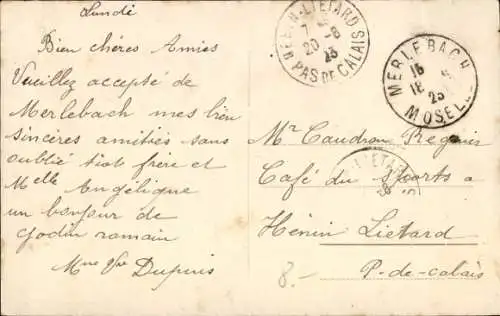 Lundi
Bien chères Amies
Veuillez accepté de
Merlebach mes bien
sincères amitiés sans
oublié tiot frère et
Melle Angélique
un bonjour de
godin romain
Mme Vve Dupuis
HENIN-LIETARD
7
20-8
23
PAS DE CALAIS
MERLEBACH
16
18
23
MOSELLE
Mr Caudron Regnier
Café du Sports a
Hénin Lietard
P-de-calais
LIETARD
8.-